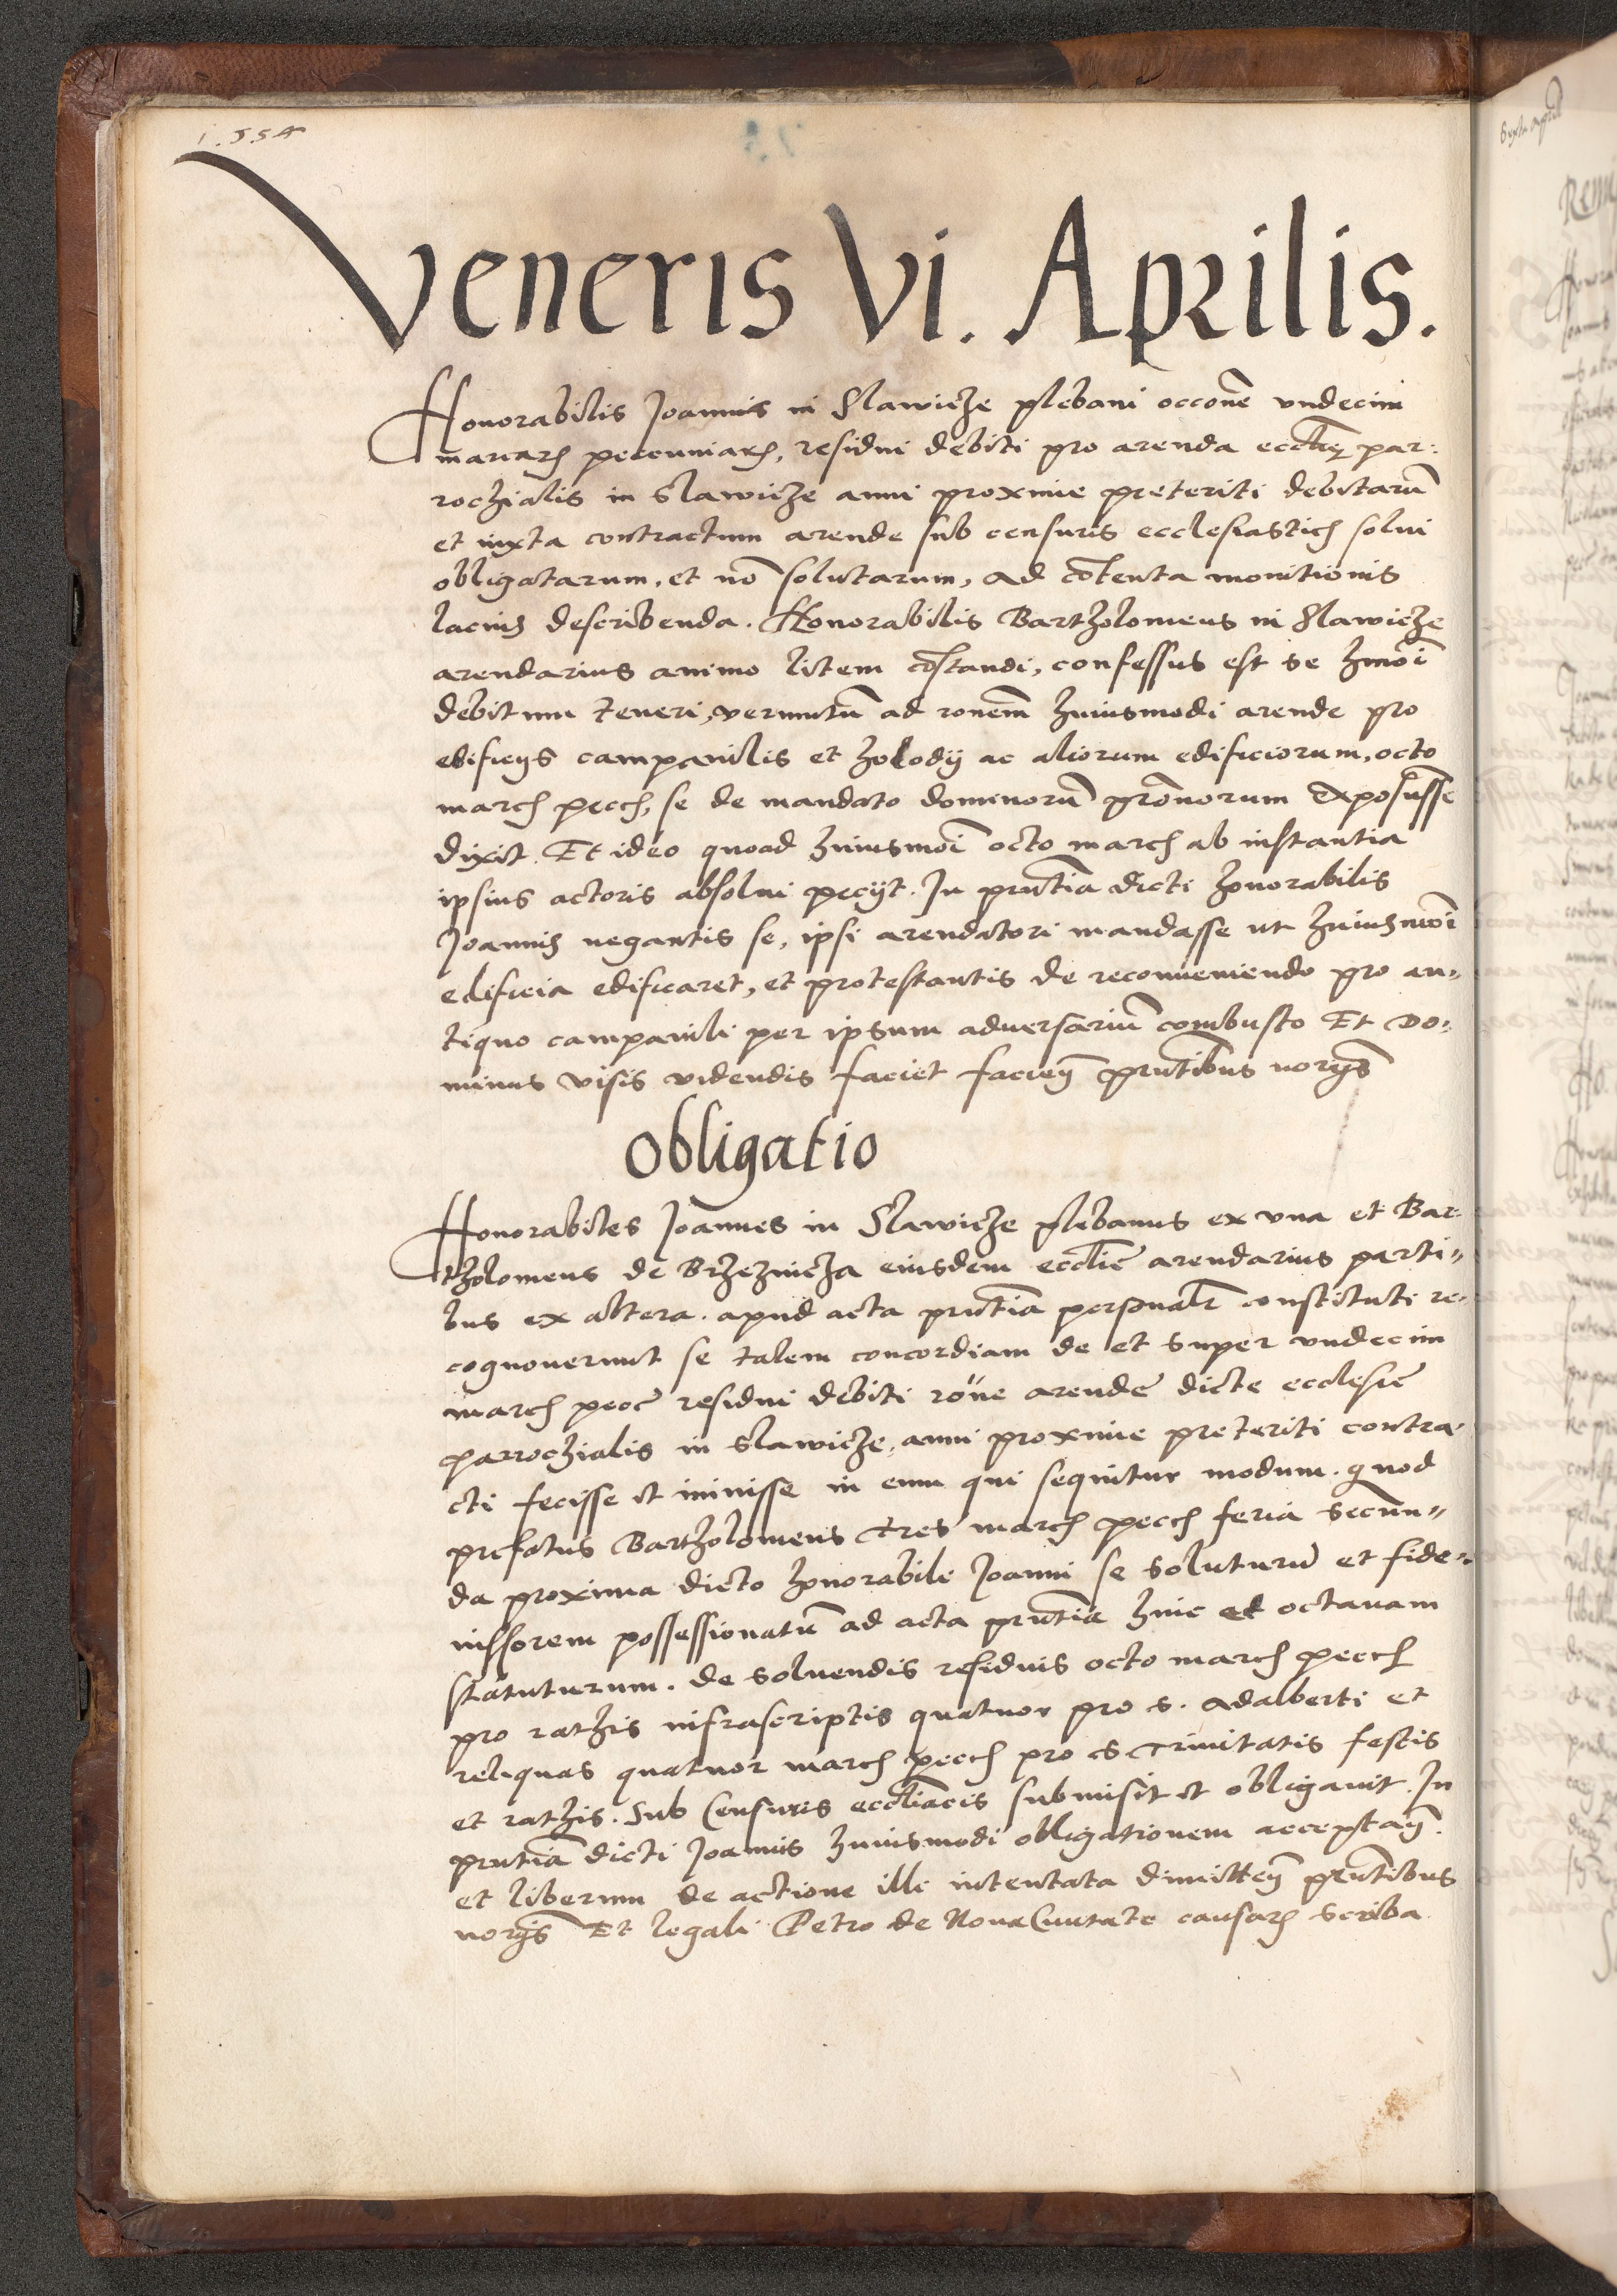 1.5.5.4
Veneris Vi. Aprilis.
Honorabilis Joannis in Slawicze plebani occone vndecim
marcarum pecuniarum, residui debiti pro arenda ecclie par:
rochialis in Slawicze anni proxime preteriti debitarū
et iuxta contractum arende sub censuris ecclesiasticis solui
obligatarum, et nō solutarum, ad cōtenta monitionis
lacius describenda. Honorabilis Bartholomeus in Slawicze
arendarius animo litem cōstandi, confessus est se hmōi
debitum teneri, verumtū ad ronem huiusmodi arende pro
edificys campanilis et holodij ac aliorum edificiorum, octo
march pecch, se de mandato dominorū grōnorum exposuisse
dixit. Et ideo quoad huiusmōi octo march ab instantia
ipsius actoris absolui pecijt. In pntia dicti honorabilis
Joannis negantis se, ipsi arendatori mandasse ut huiusmōi
edificia edificaret, et protestantis de reconueniendo pro an„
tiquo campanili per ipsum aduersariū combusto Et Do„
minus visis videndis faciet facien pntibus norijs
Obligatio
Honorabiles Joannes in Slawicze plebanus ex vna et Bar„
tholomeus de Brzeznicza eiusdem ecclie arendarius parti„
bus ex altera. apud acta pntia personalr constituti re„
cognouerunt se talem concordiam de et super vndecim
march pecc residui debiti rōne arende dicte ecclesie
parrochialis in Slawicze, anni proxime preteriti contra„
cti fecisse et iniuisse in eum qui sequitur modum. quod
prefatus Bartholomeus tres march pecch feria secun„
da proxima dicto honorabile Joanni se soluturū et fide„
iussorem possessionatū ad acta pntia hinc ad octauam
staruturum. de soluendis residuis octo march pecch
pro rathis infrascriptis quatuor pro s. Adalberti et
reliquas quatuor march pecch pro S Trinitatis festis
et rathis. Sub Censuris eccliacis submisit et obligauit. In
pntia dicti Joannis huiusmodi obligationem acceptan.
et liberum de actione illi intentata dimitten pntibus
norijs Et legali Petro de Noua Ciuitate causarum scriba